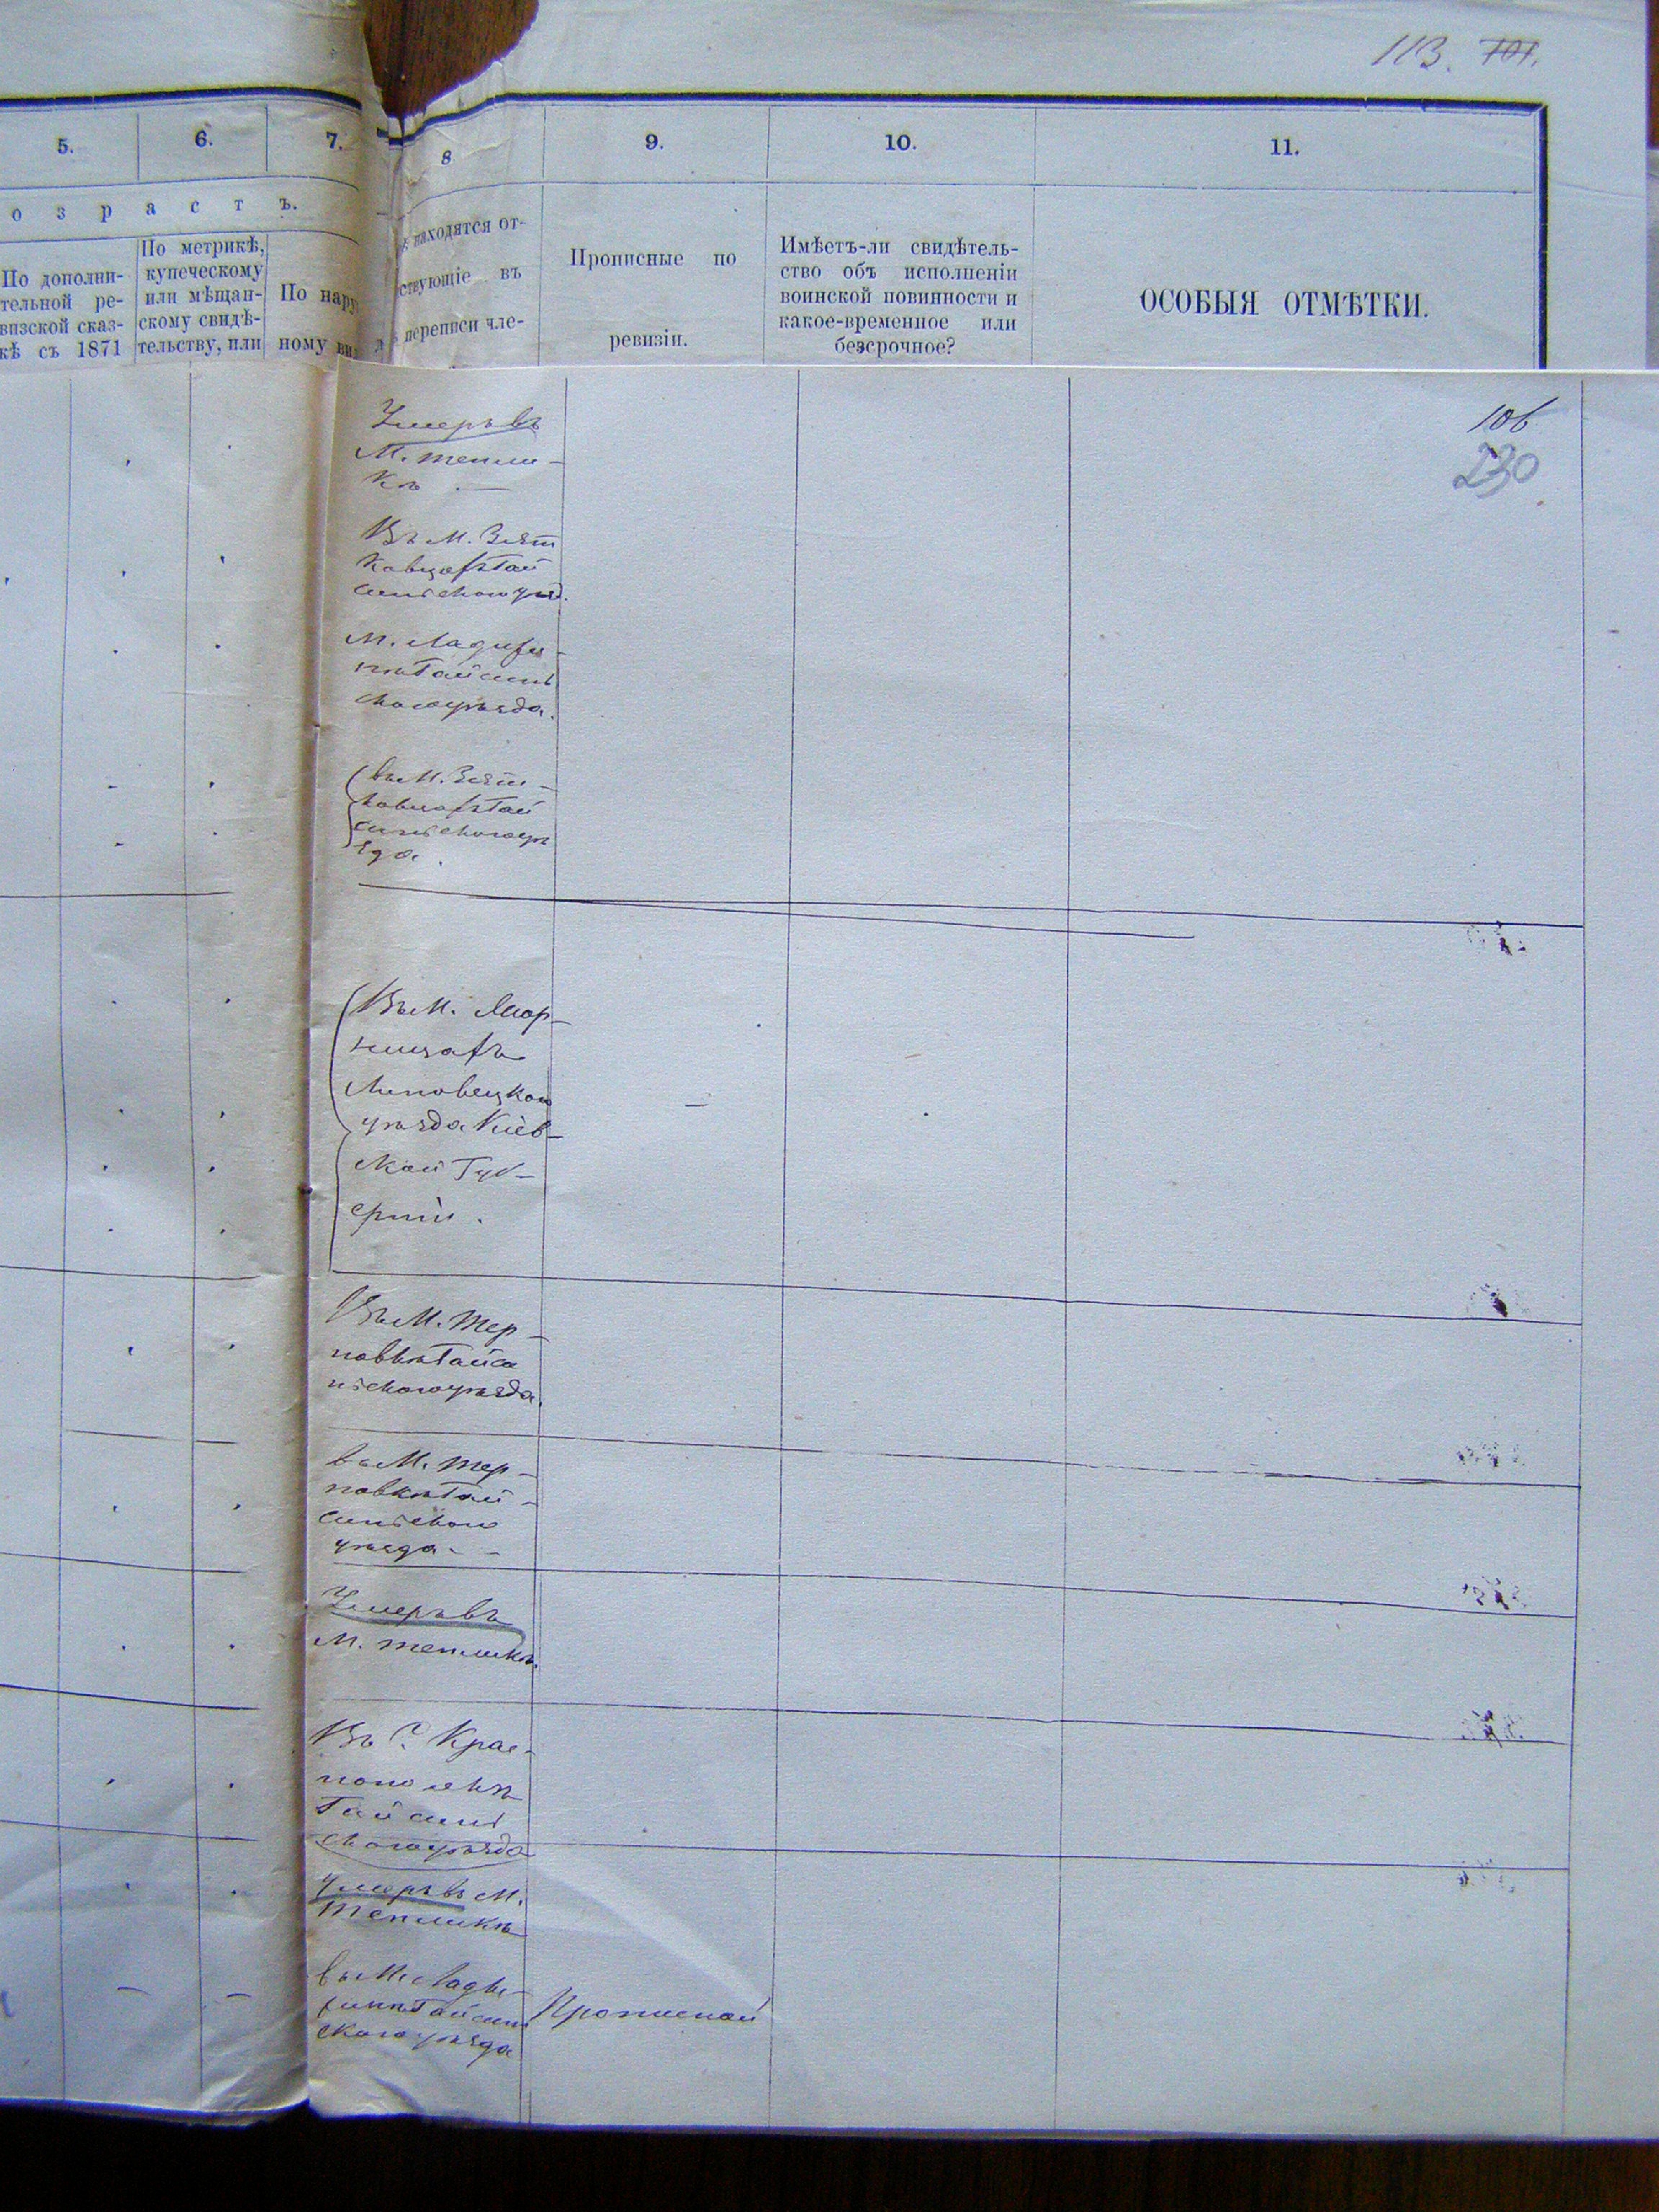 113. 701.
5. 6. 7. 8 9. 10. 11.
о з р а с т ъ.
По дополни-
тельной ре-
визской сказ-
кѣ съ 1871
По метрикѣ,
купеческому
или мѣщан-
скому свидѣ-
тельству, или
По нару
ному ви
находятся от-
ствующіе въ
переписи чле-
Прописные по
ревизіи.
Имѣетъ-ли свидѣтель-
ство объ исполненіи
воинской повинности и
какое-временное или
безсрочное?
ОСОБЫЯ ОТМѢТКИ.
106
230
Умеръ въ
М. Тепли-
кѣ
Въ М. Зят
ковцахъ Гай
синскаго уѣзд.
М. Ладыжи
нѣ Гайсин
скаго уѣзда.
въ М. Зят-
ковцахъ Гай
синскаго уѣ
зда.
Въ М.
Липовецкаго
уѣзда Кіев-
ской Губ-
ерніи.
Въ М. Тер-
новкѣ Гайси
нскаго уѣзда.
въ М. Тер-
новкѣ Гай-
синскаго
уѣзда
Умеръ въ
М. Тепликѣ
Въ С. Крас-
нополкѣ
Гайсин
скаго уѣзда
Умеръ въ М.
Тепликѣ
въ М. Лады-
жинѣ Гайсин
скаго уѣзда
Прописной